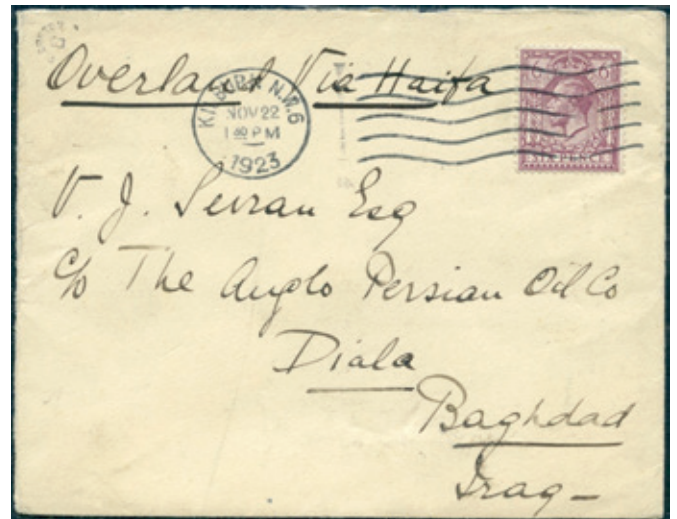 Overland Via Haifa
KILBURN N.W.6
NOV 22
1 30 PM
1923
6 6
SIX PENCE
V. J. Serran Esq
c/o The Anglo Persian Oil Co
Diala
Baghdad
Iraq -